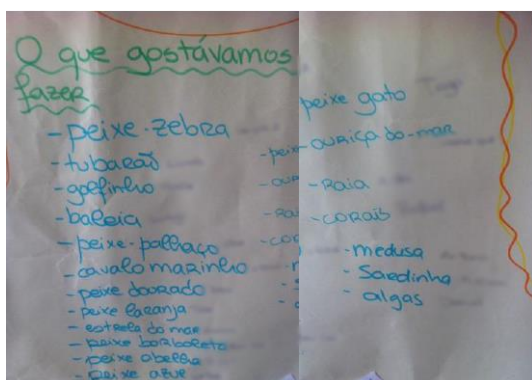 O que gostávamos
fazer
- peixe-zebra
- tubarão
- golfinho
- baleia
- peixe-palhaço
- cavalo marinho
- peixe dourado
- peixe laranja
- estrela do mar
- peixe borboleta
- peixe abelha
- peixe azul
peixe gato
- peix ouriço do-mar
- our - Raia
- Rai - corais
- cor
- medusa
- Sardinha
- algas